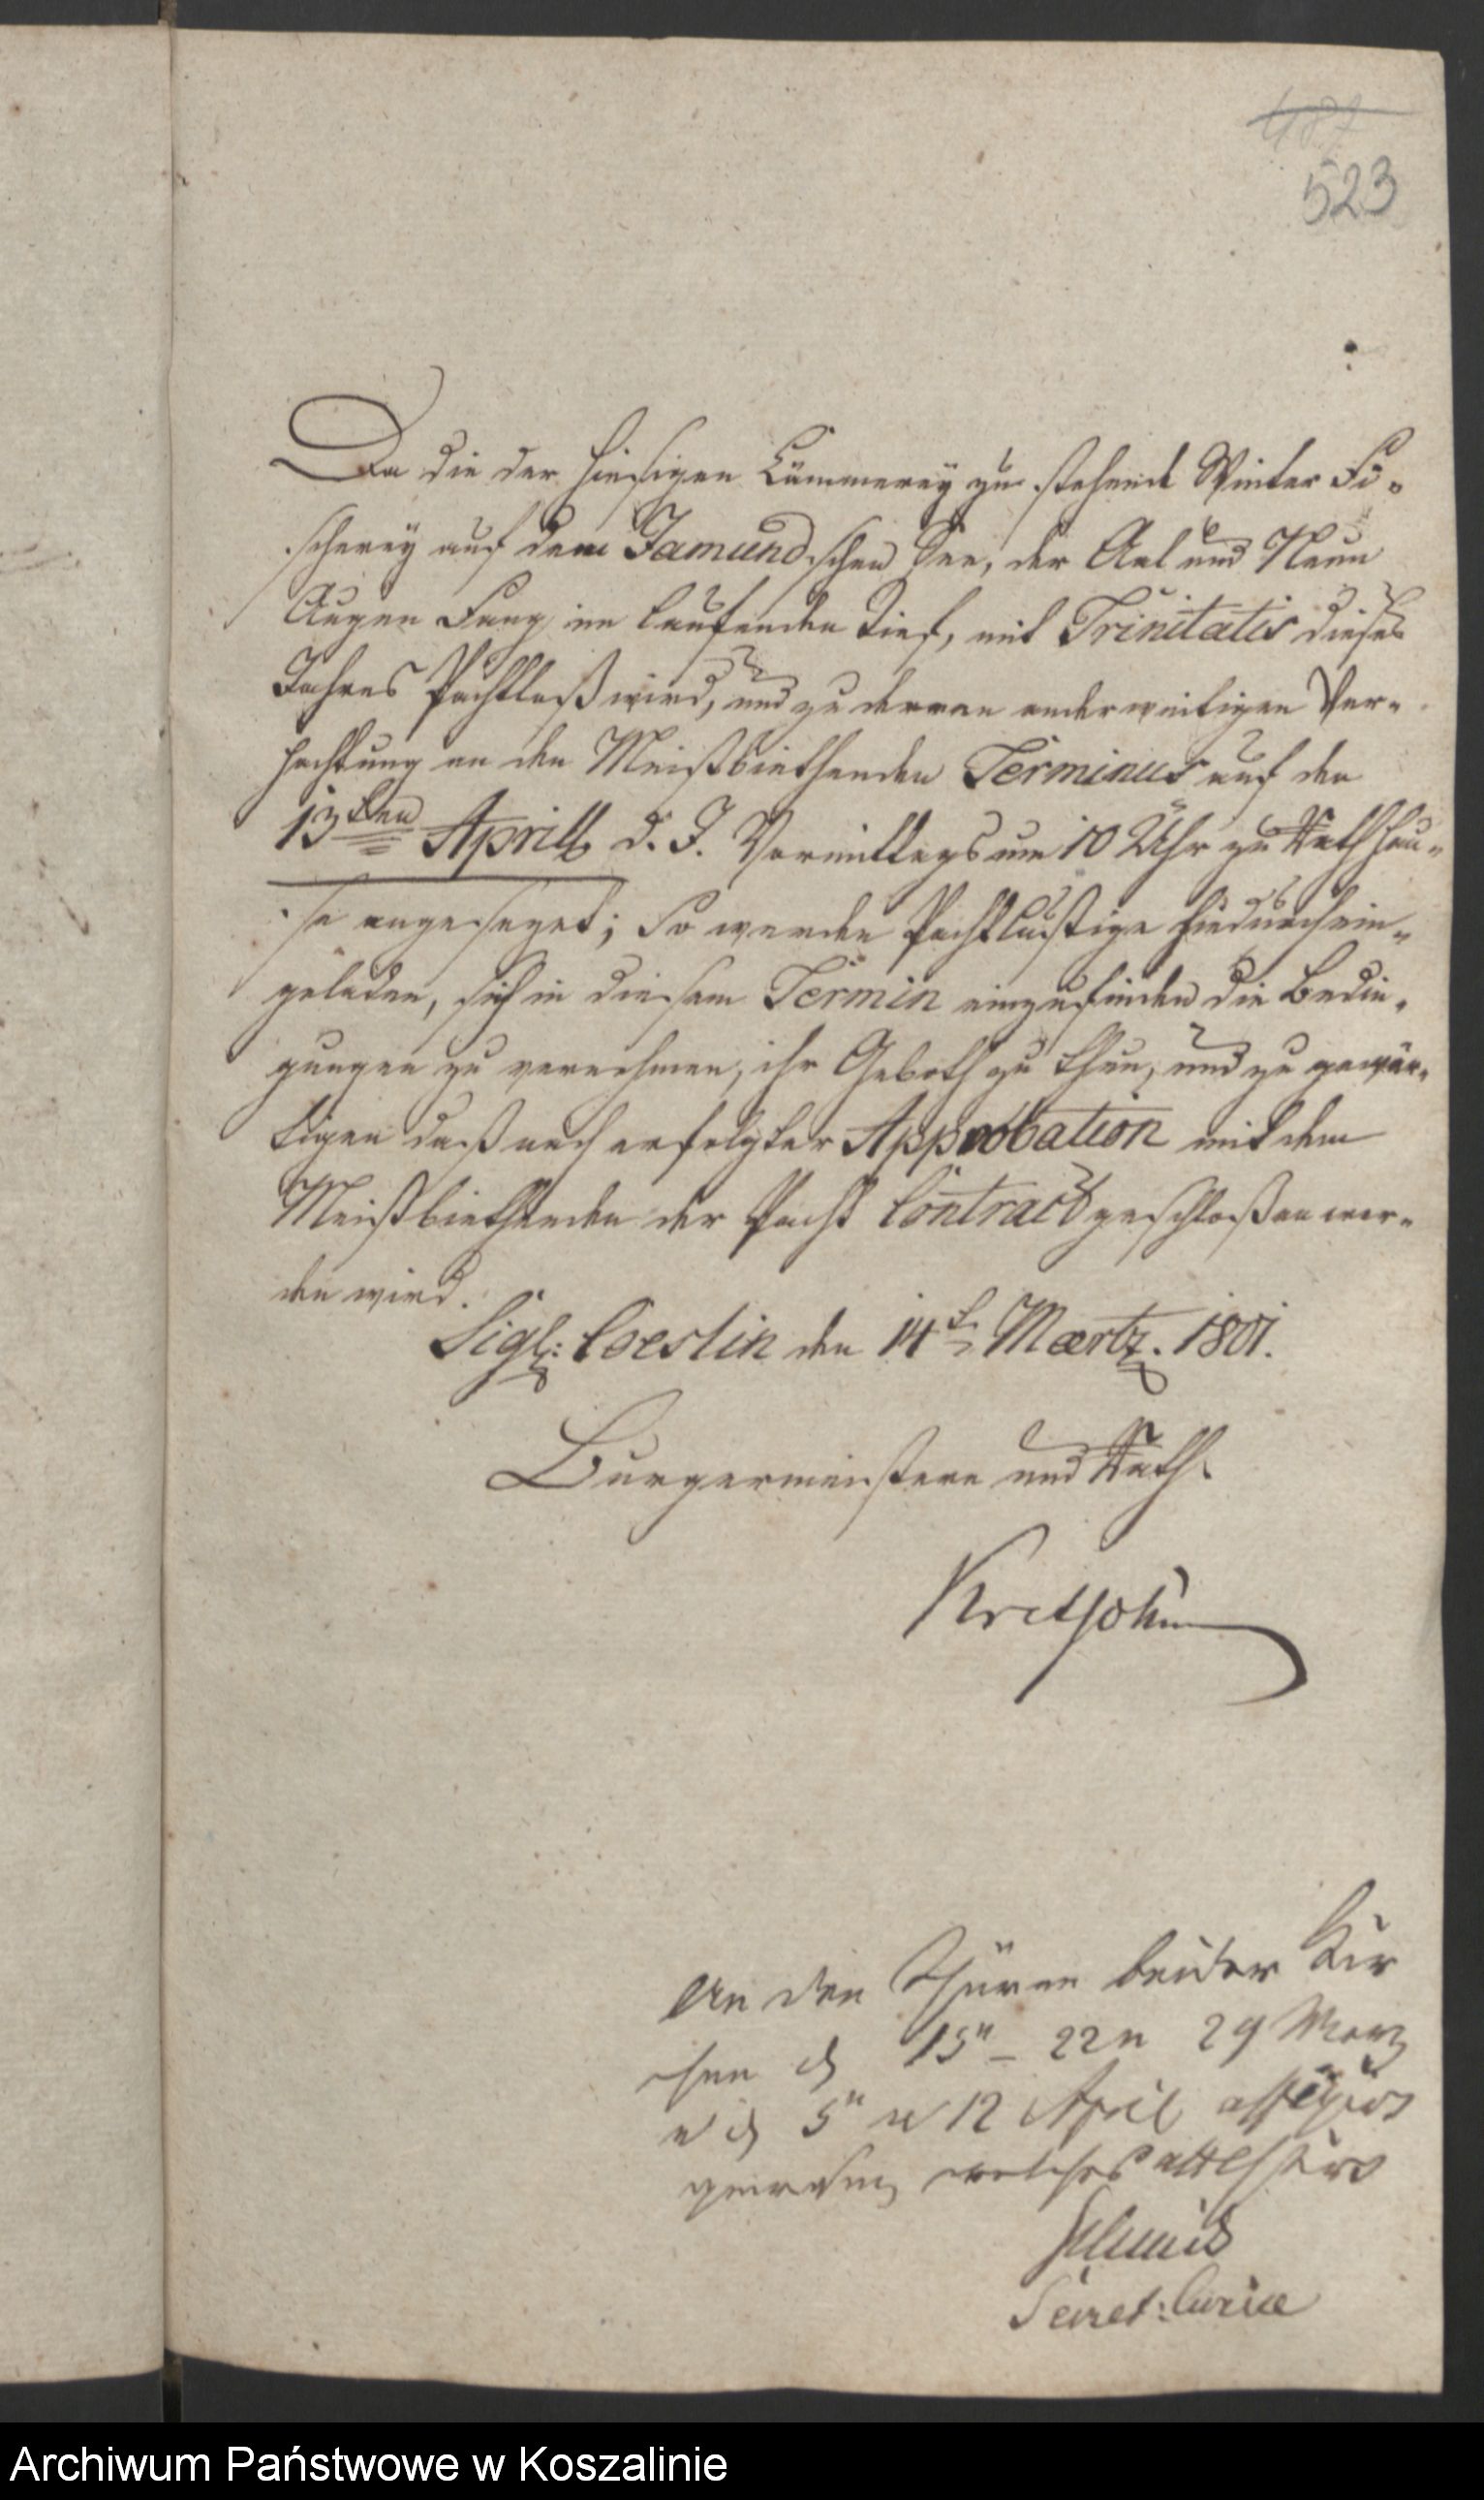 523
Da die der hiesigen Cämmerey zu stehende Winter Fi-
scherey auf dem Jamundschen See, der Aal und Neun
Augen Fang im laufenden Tief, mit Trinitatis dieses
Jahres Pachtloß wird, und zu deren anderweitigen Ver-
pachtung an den Meistbiethenden Terminus auf den
13ten Aprill d. J. Vormittags um 10 Uhr zu Rathhau-
se angesezet; So werden Pachtlustige hiedurch ein-
geladen, sich in diesem Termin einzufinden die Bedin-
gungen zu vernehmen, ihr Geboth zu thun, und zu gewär-
tigen daß nach erfolgter Approbation mit dem
Meistbiethenden der Pacht Contract geschloßen wer-
den wird.
Sigl: Coeslin den 14t Maertz. 1801.
Burgermeistere und Rath.
An den Thüren beider Kir
chen d 15n 22n 29 Merz
u d 5n u 12 April affigirt
welches attestirt
Schmid
Secret: Curiae
Archiwum Państwowe w Koszalinie